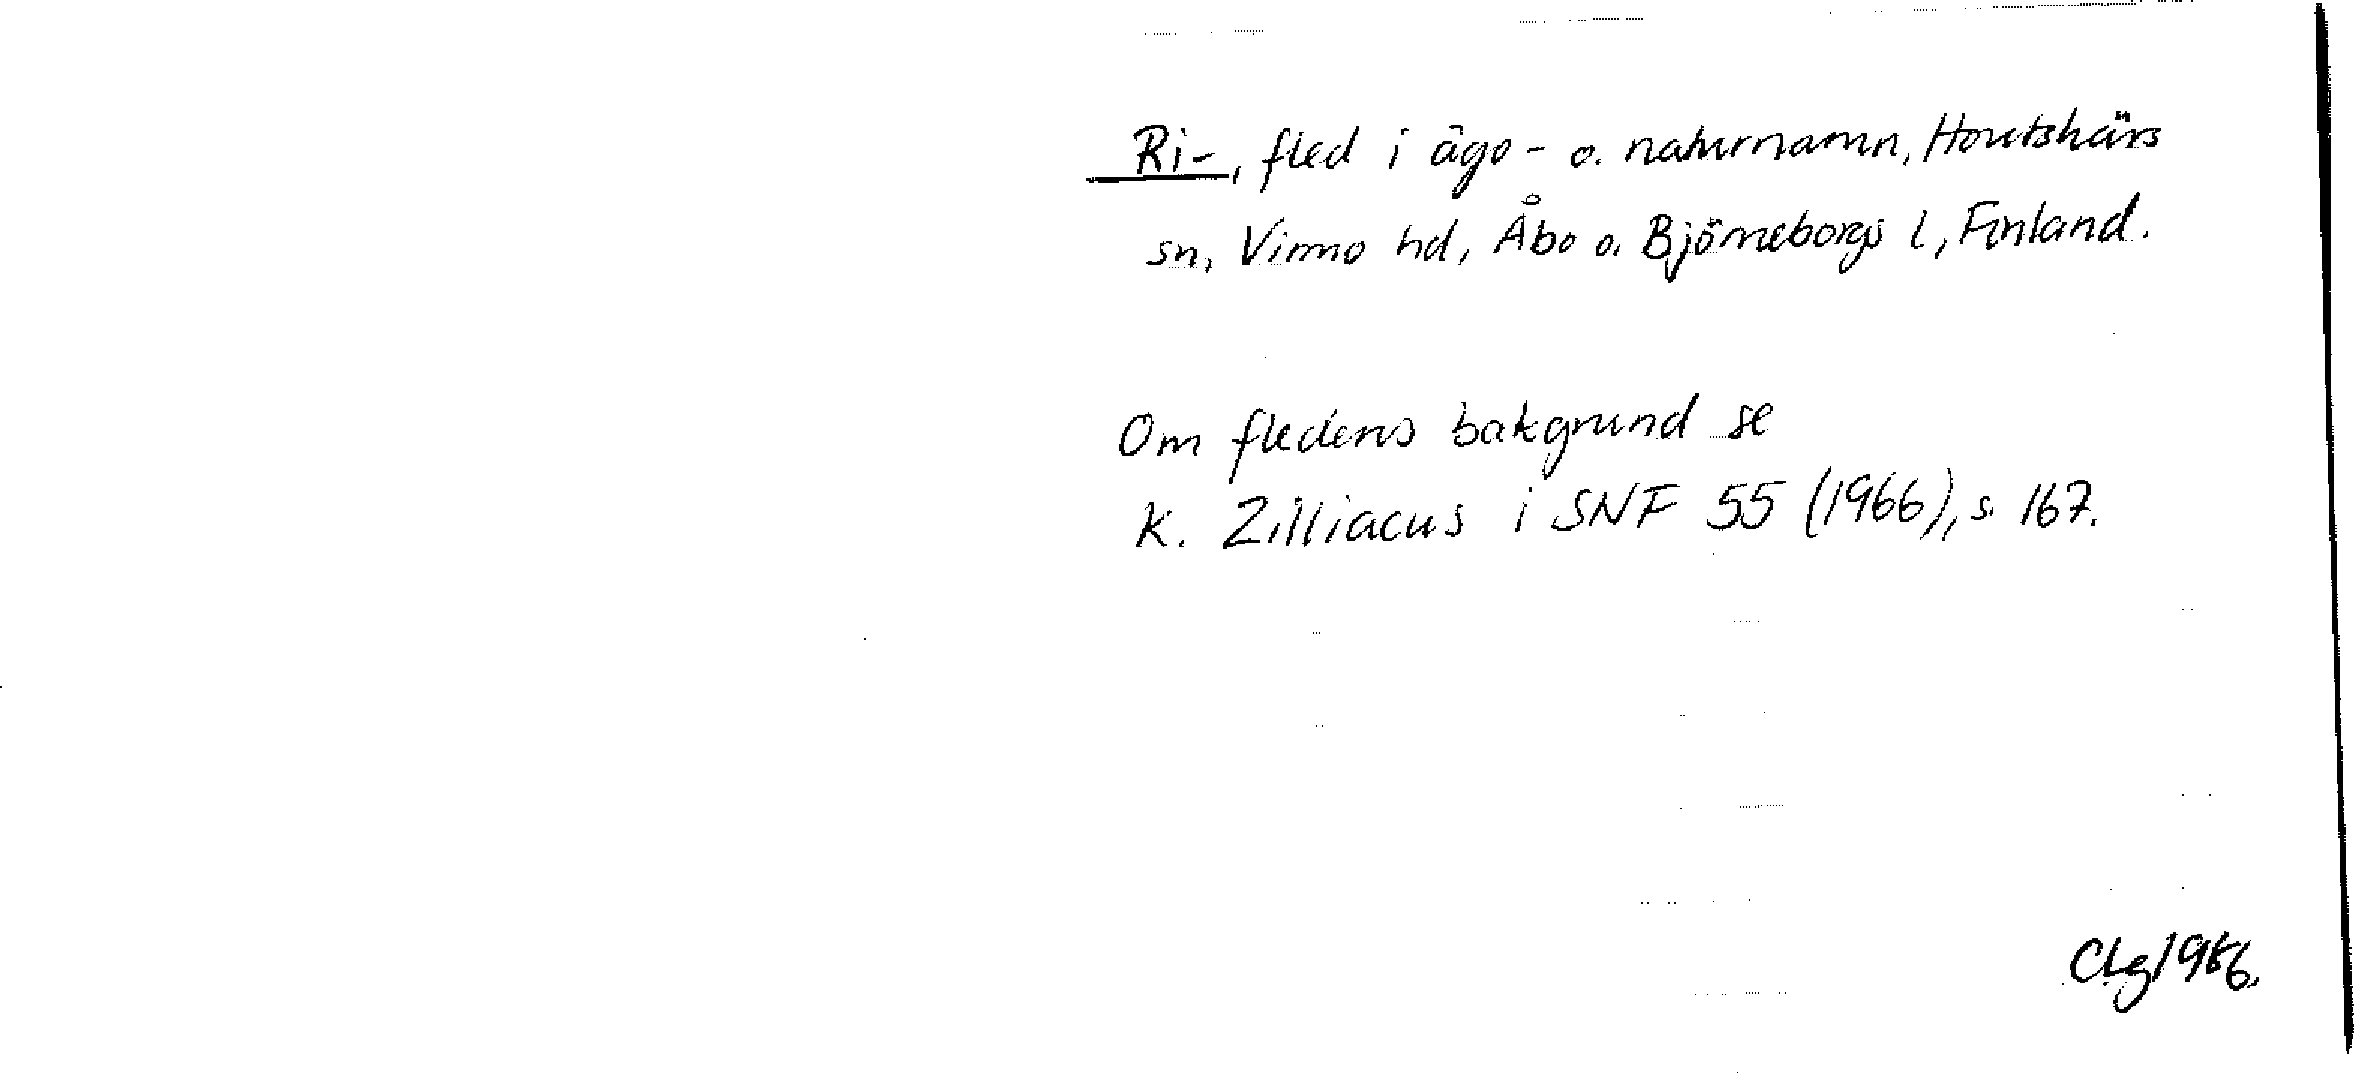 Ri-, fled i ägo- o. naturnamn, Houtskärs
sn, Virmo hd, Åbo o. Björneborgs l, Finland.
Om fledens bakgrund se
K. Zilliacus i SNF 55 (1966), s. 167.